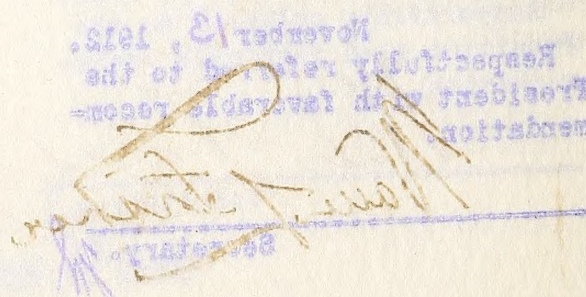 November 13, 1912.
Respectfully referred to the
President with favorable recom-
mendation.
Secretary.